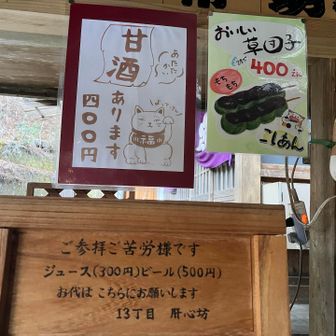 甘酒
あたたかい
あります
四〇〇円
福
おいしい
草団子
400
もちもち
こしあん
ご参拝ご苦労様です
ジュース(300円)ビール(500円)
お代はこちらにお願いします
13丁目 肝心坊